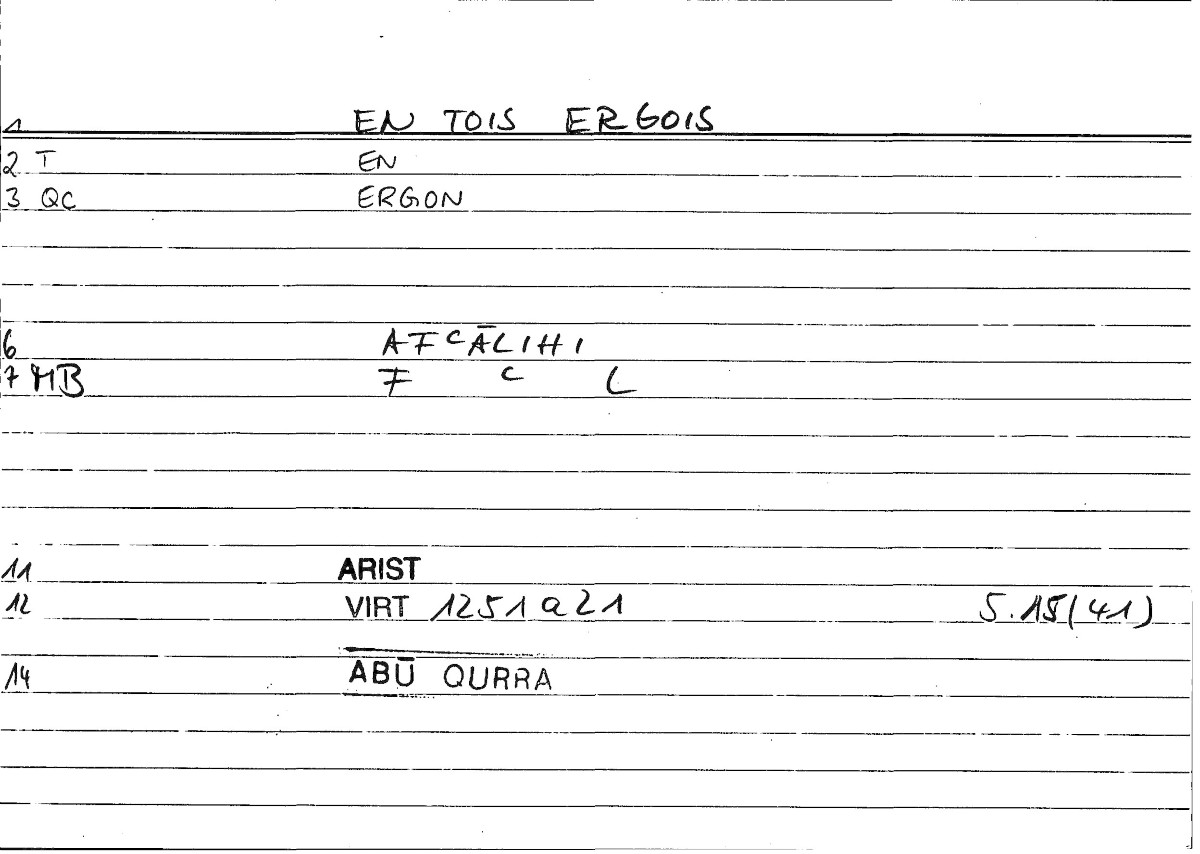 1 EN TOIS ERGOIS
2 T EN
3 QC ERGON
6 AFᶜĀLIHI
7 MB F ᶜ L
11 ARIST
12 VIRT 1251a21 5.15(41)
14 ABŪ QURRA